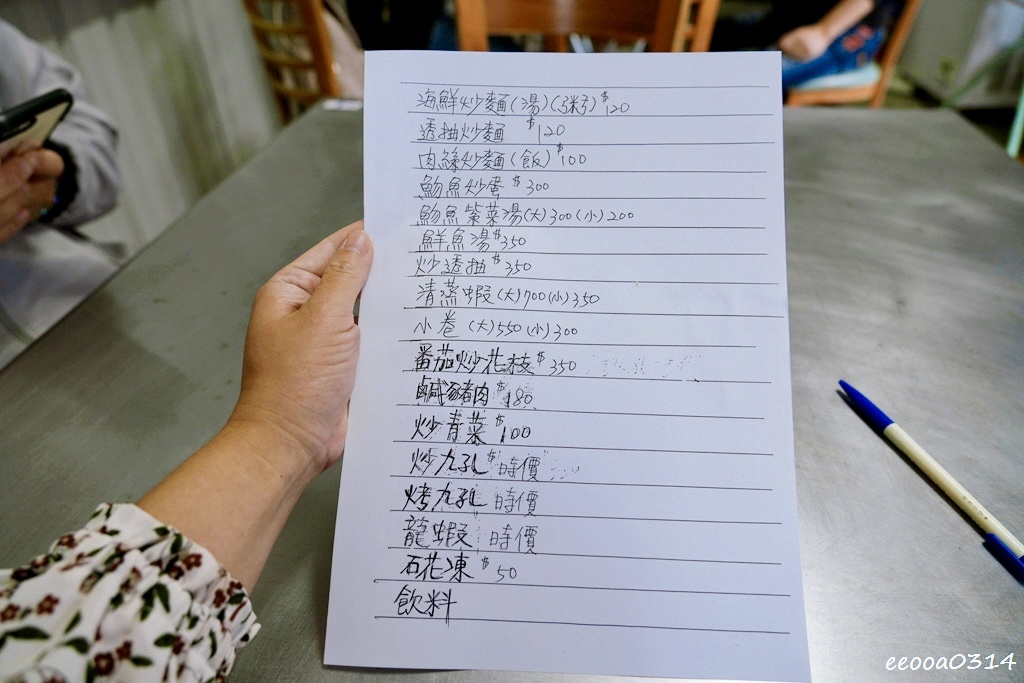 海鮮炒麵(湯)(粥) $120
透抽炒麵 $120
肉絲炒麵(飯) $100
魩魚炒蛋 $300
魩魚紫菜湯(大)300(小)200
鮮魚湯 $350
炒透抽 $350
清蒸蝦(大)700(小)350
小卷 (大)550(小)300
番茄炒花枝 $350
鹹豬肉 $180
炒青菜 $100
炒九孔 $時價
烤九孔 時價
龍蝦 時價
石花凍 $50
飲料
eeooa0314